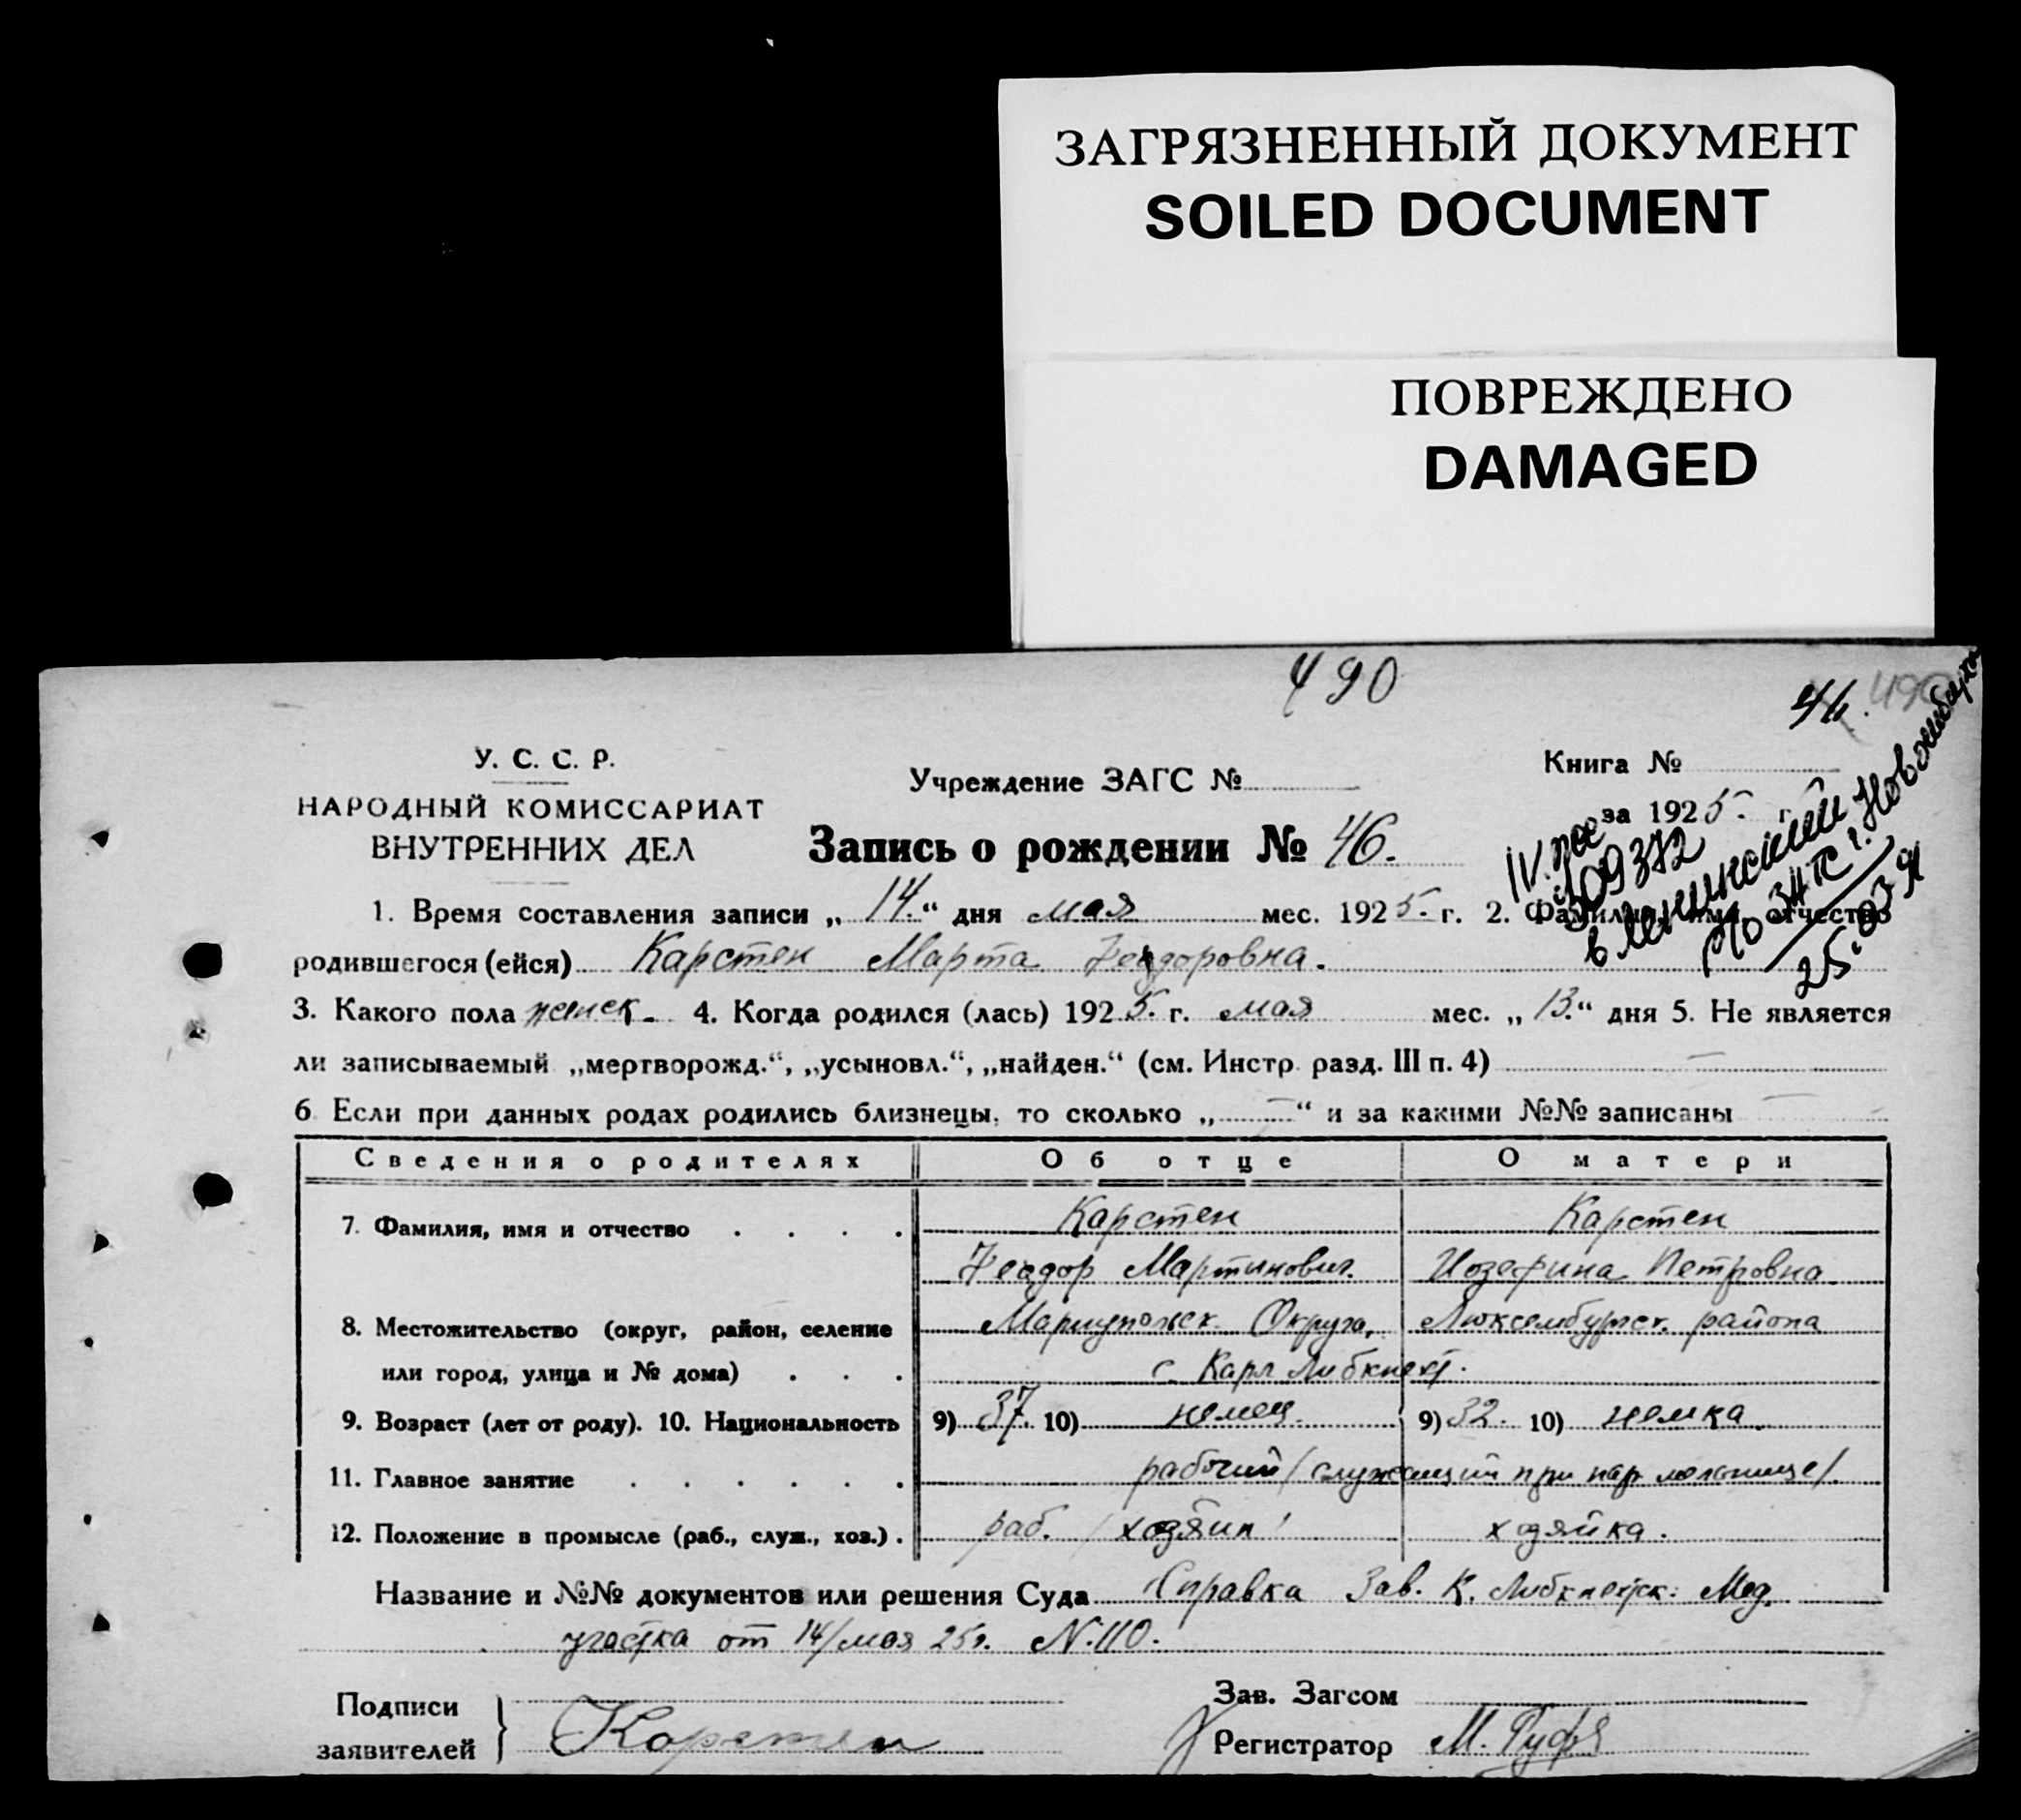 ЗАГРЯЗНЕННЫЙ ДОКУМЕНТ
SOILED DOCUMENT
ПОВРЕЖДЕНО
DAMAGED
490
46. 490
У. С. С. Р.
НАРОДНЫЙ КОМИССАРИАТ
ВНУТРЕННИХ ДЕЛ
Учреждение ЗАГС №
Книга №
за 1925. г.
Запись о рождении № 46.
309372
в Ленинский
г. Новосибирска
25.03.91
1. Время составления записи „ 14. “ дня мая мес. 1925. г. 2. Фамилия, имя, отчество
родившегося (ейся) Карстен Марта Теодоровна.
3. Какого пола женск. 4. Когда родился (лась) 1925. г. мая мес. „ 13. “ дня 5. Не является
ли записываемый „мертворожд.“, „усыновл.“, „найден.“ (см. Инстр. разд. III п. 4) —
6. Если при данных родах родились близнецы, то сколько „ — “ и за какими №№ записаны —
Сведения о родителях Об отце О матери
7. Фамилия, имя и отчество . . . . Карстен Карстен
Теодор Мартинович. Иозефина Петровна
8. Местожительство (округ, район, селение Мариупольск. Округа, Люксембургск. района
или город, улица и № дома) . . . с. Карл Либкнехт.
9. Возраст (лет от роду). 10. Национальность 9) 37. 10) немец. 9) 32. 10) немка.
11. Главное занятие . . . . . . рабочий /служащий при мельнице/.
12. Положение в промысле (раб., служ., хоз.) . раб. /хозяин/ хозяйка.
Название и №№ документов или решения Суда Справка Зав. К. Либкнехтск. Мед.
участка от 14/мая 25г. N. 110.
Подписи
заявителей } Карстен
Зав. Загсом
Регистратор М.